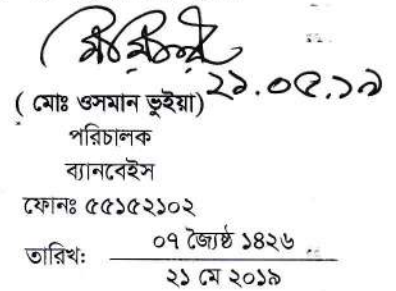 ২১.০৫.১৯
( মোঃ ওসমান ভুইয়া)
পরিচালক
ব্যানবেইস
ফোনঃ ৫৫১৫২১০২
তারিখ: ০৭ জ্যৈষ্ঠ ১৪২৬
২১ মে ২০১৯